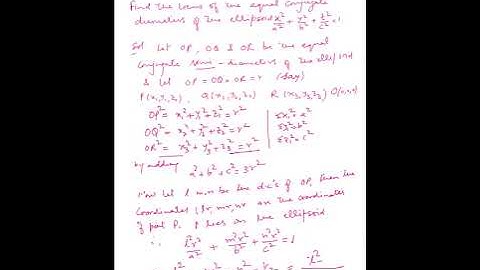 Find the locus of the equal conjugate
diameters of the ellipsoid x²/a² + y²/b² + z²/c² = 1
Sol Let OP, OQ & OR be the equal
conjugate semi-diameters of the ellipsoid
& let OP = OQ = OR = r (say)
P(x₁,y₁,z₁) Q(x₂,y₂,z₂) R(x₃,y₃,z₃) O(0,0,0)
OP² = x₁² + y₁² + z₁² = r² Σx₁² = a²
OQ² = x₂² + y₂² + z₂² = r² Σy₁² = b²
OR² = x₃² + y₃² + z₃² = r² Σz₁² = c²
by adding
a² + b² + c² = 3r²
Now let l, m, n be the dc's of OP, then the
coordinates lr, mr, nr are the coordinates
of point P. P lies on the ellipsoid
∴ l²r²/a² + m²r²/b² + n²r²/c² = 1